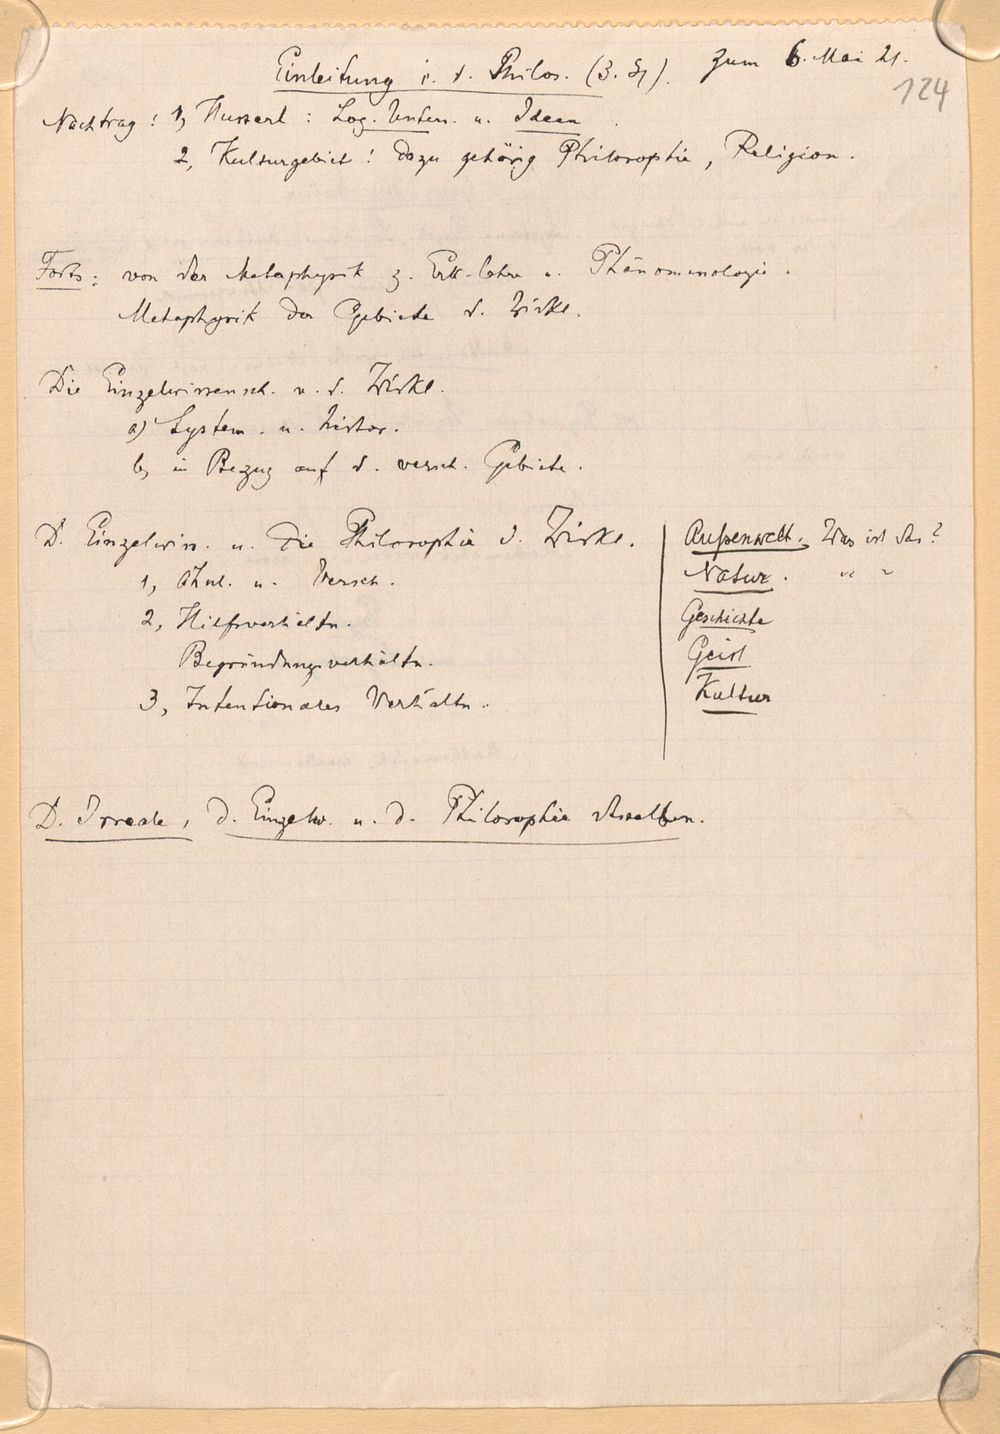 Einleitung i. d. Philos. (3. St). zum 6. Mai 21.
124
Nachtrag: 1, Husserl: Log. Unters. u. Ideen.
2, Kulturgebiet: dazu gehörig Philosophie, Religion.
Forts: von der Metaphysik z. Erk.lehre u. Phänomenologie.
Metaphysik der Gebiete d. Wirkl.
Die Einzelwissensch. u. d. Wirkl.
a) System. u. histor.
b, in Bezug auf d. versch. Gebiete.
D. Einzelwiss. u. die Philosophie d. Wirkl.
1, Ähnl. u. Versch.
2, Hilfsverhältn.
Begründungsverhältn.
3, Intentionales Verhältn.
Außenwelt. Was ist das?
Natur. " "
Geschichte
Geist
Kultur
D. Irreale, d. Einzelw. u. d. Philosophie desselben.